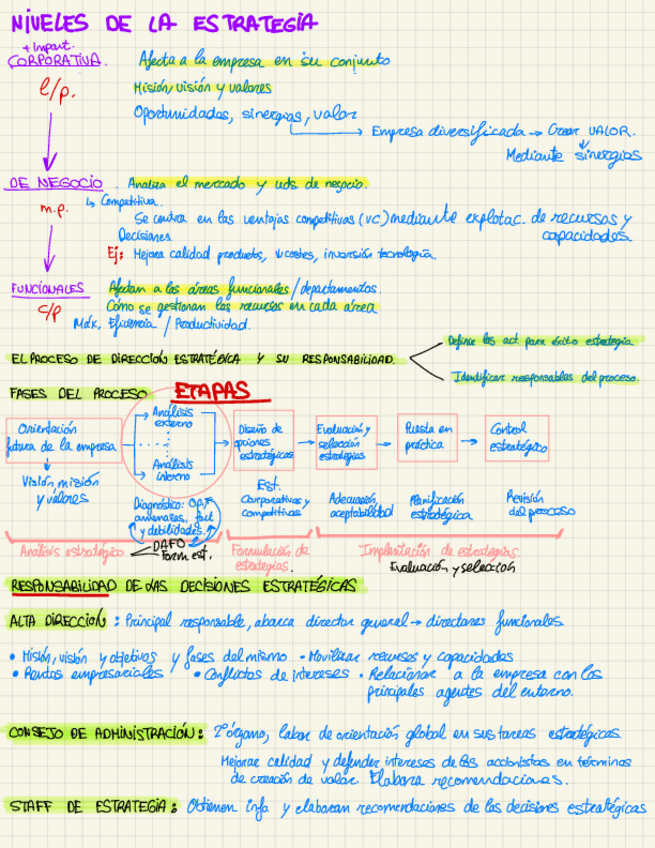 NIVELES DE LA ESTRATEGIA
+ Impart.
CORPORATIVA. Afecta a la empresa en su conjunto
l/p. Misión, visión y valores
Oportunidades, sinergias, valor
Empresa diversificada → Crear VALOR.
Mediante sinergias
DE NEGOCIO. Analiza el mercado y uds. de negocio.
m.p. ↳ Competitiva.
Se centra en las ventajas competitivas (VC) mediante explotac. de recursos y
Decisiones capacidades
Ej: Mejora calidad productos, ↓costes, inversión tecnología
FUNCIONALES Afectan a las áreas funcionales / departamentos.
c/p Cómo se gestionan los recursos en cada área
Máx. Eficiencia / Productividad.
Definir las act. para éxito estrategia
EL PROCESO DE DIRECCIÓN ESTRATÉGICA Y SU RESPONSABILIDAD.
Identificar responsables del proceso.
FASES DEL PROCESO ETAPAS
Orientación
futura de la empresa
Análisis
externo
Análisis
interno
Diseño de
opciones
estratégicas
Evaluación y
selección
estrategias
Puesta en
práctica
Control
estratégico
Visión, misión
y valores
Diagnóstico: Op,
amenazas, fort
y debilidades.
Est.
Corporativas y
competitivas
Adecuación,
aceptabilidad
Planificación
estratégica
Revisión
del proceso
Análisis estratégico
DAFO
Form est.
Formulación de
estrategias.
Implantación de estrategias.
Evaluación y selección
RESPONSABILIDAD DE LAS DECISIONES ESTRATÉGICAS
ALTA DIRECCIÓN: Principal responsable, abarca director general → directores funcionales
• Misión, visión y objetivos y fases del mismo • Movilizar recursos y capacidades
• empresariales • Conflictos de intereses • Relacionar a la empresa con los
principales agentes del entorno.
CONSEJO DE ADMINISTRACIÓN: 2º órgano, labor de orientación global en sus tareas estratégicas.
Mejorar calidad y defender intereses de los accionistas en términos
de creación de valor. Elabora recomendaciones.
STAFF DE ESTRATEGIA: Obtienen info y elaboran recomendaciones de las decisiones estratégicas